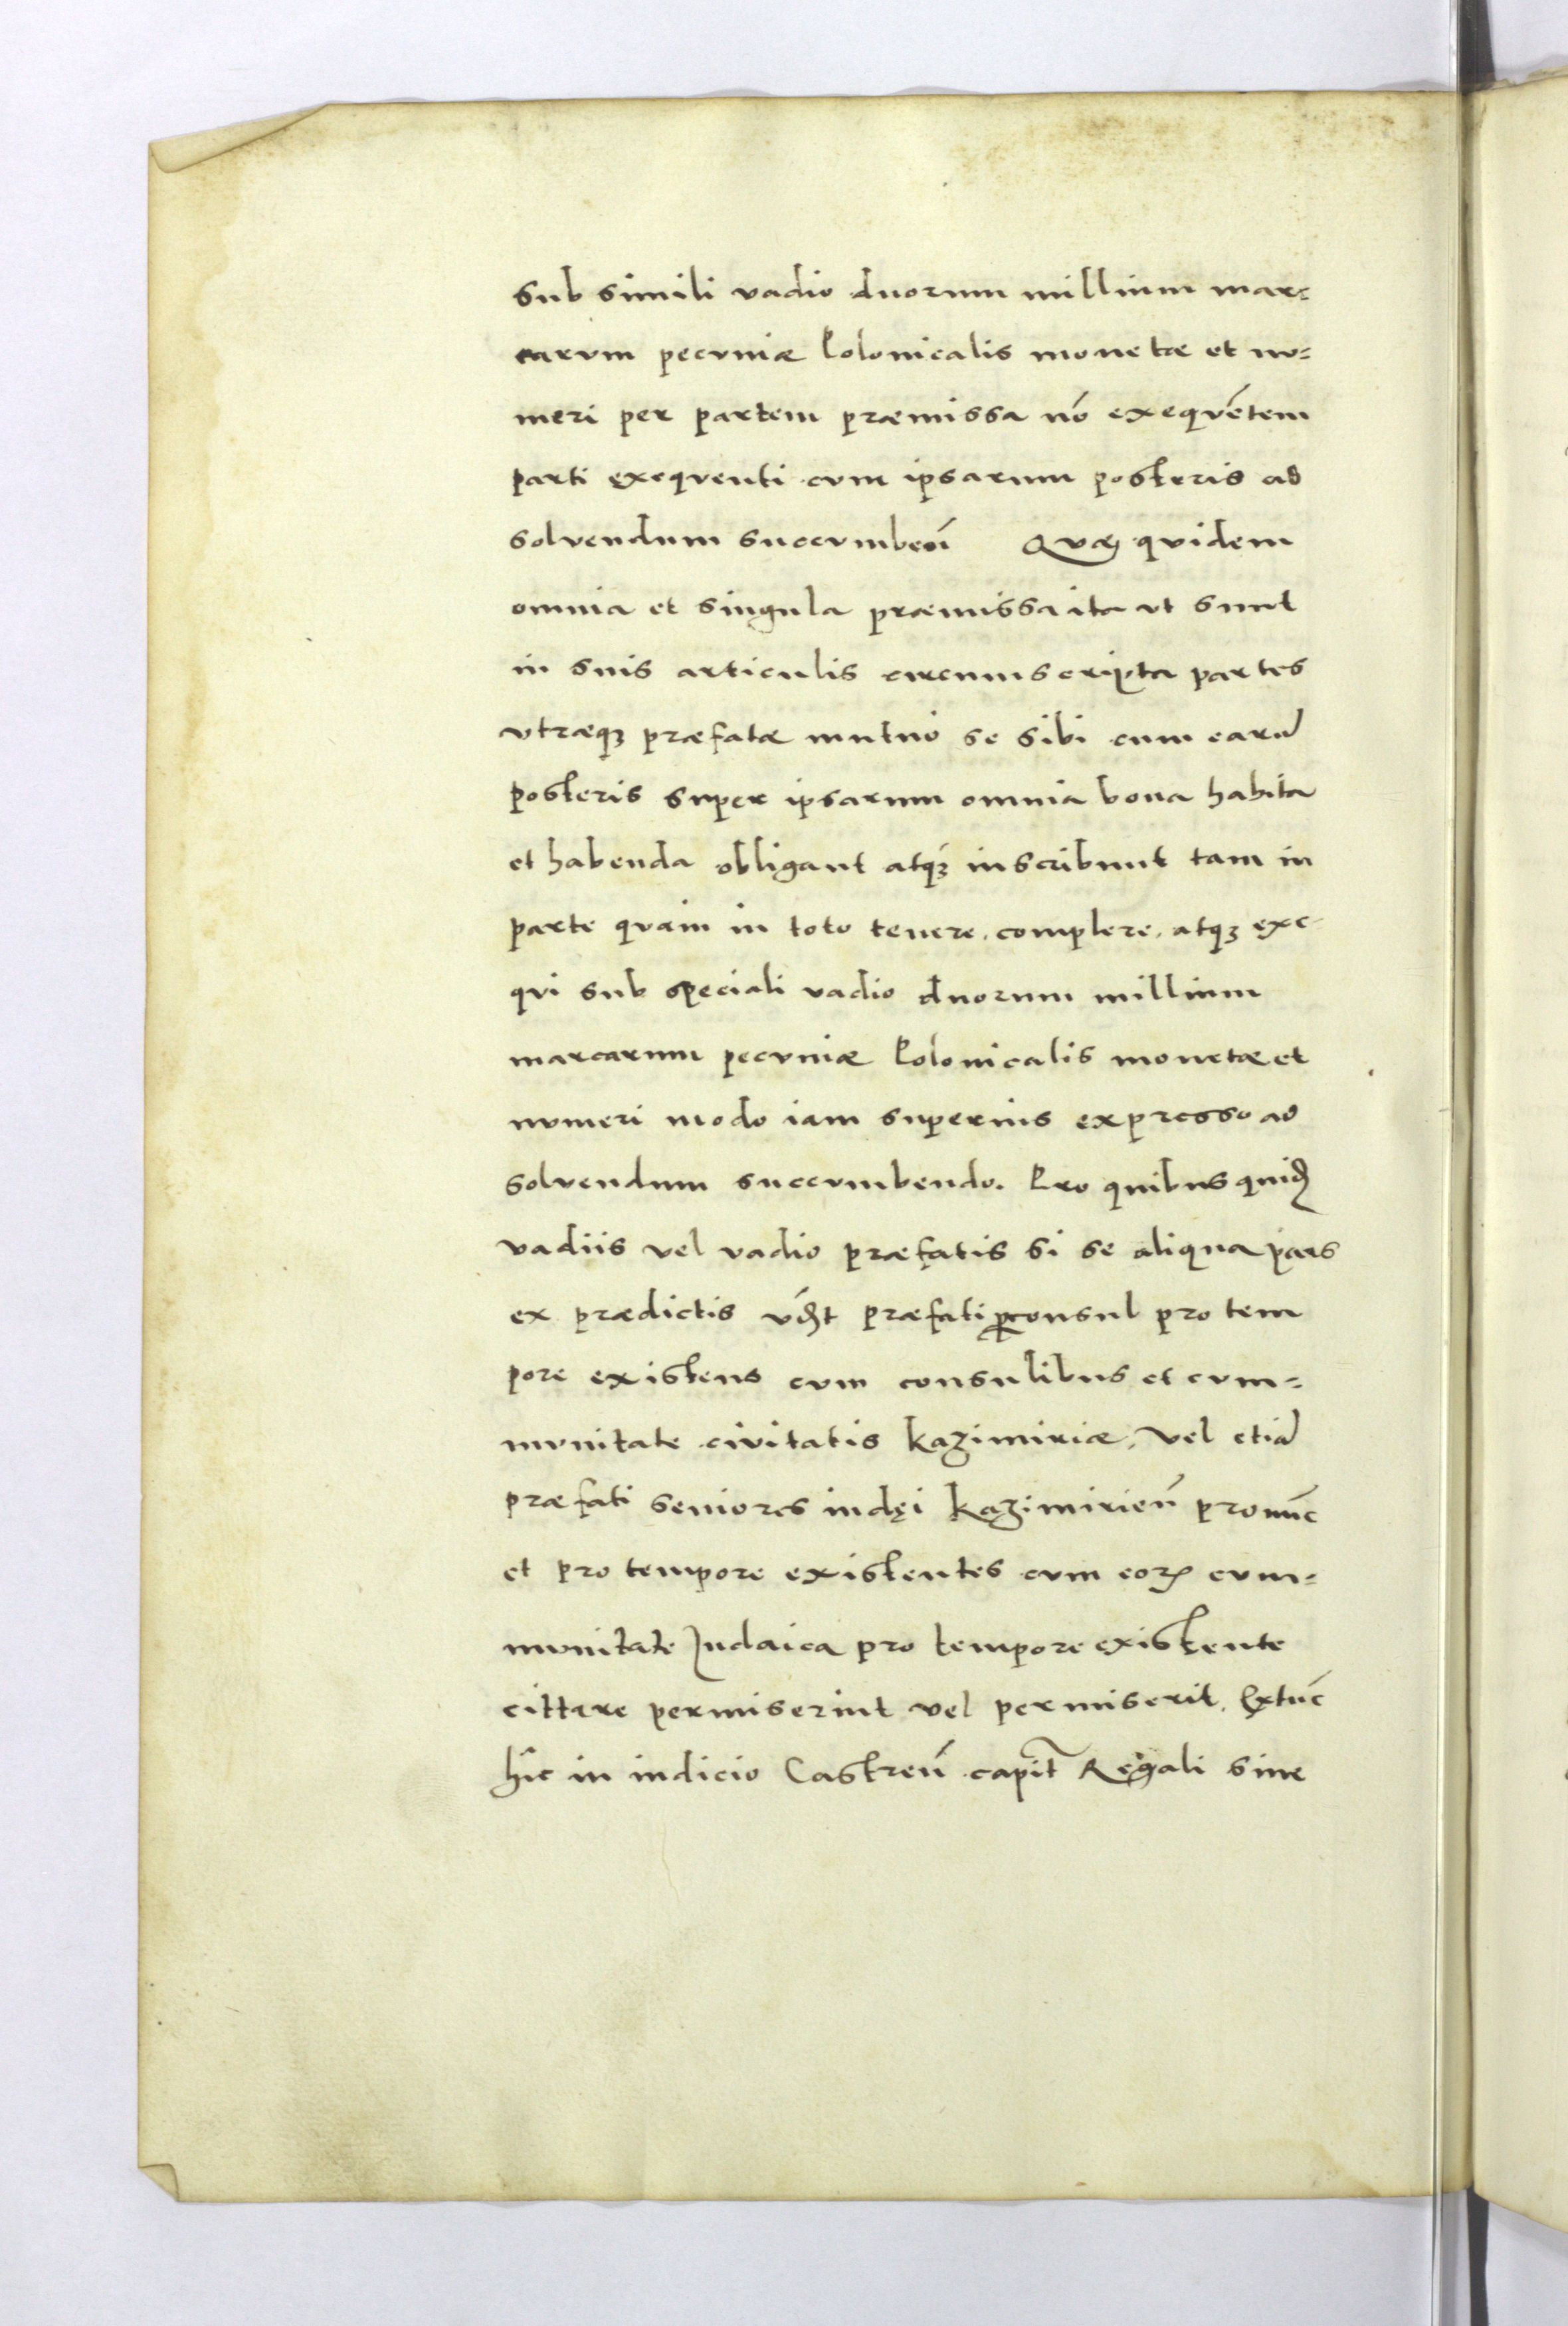 sub simili vadio duorum millium mar=
carum pecuniæ Polonicalis monetæ et nu=
meri per partem præmissa nō exequētem
parti exequenti cum ipsarum posteris ad
solvendum succumbeń Quæ quidem
omnia et singula præmissa ita ut sunt
in suis articulis circumscripta partes
utræqꝫ præfatæ mutuo se sibi cum earū
posteris super ipsarum omnia bona habita
et habenda obligant atqꝫ inscribunt tam in
parte quam in toto tenere, complere, atqꝫ exe-
qui sub speciali vadio duorum millium
marcarum pecuniæ Polonicalis monetæ et
numeri modo iam superius expresso ad
solvendum succumbendo. Pro quibus quid
vadiis vel vadio præfatis si se aliqua pars
ex prædictis vdt præfati ꝓconsul pro tem
pore existens cum consulibus et cum=
munitate civitatis Kazimiriæ, vel etiā
præfati seniores iudęi Kazimirień pronūc
et pro tempore existentes cum eoꝝ cum=
munitate Judaica pro tempore existente
cittare permiserint vel permiserit, Extūc
hic in iudicio Castreń capit Regali sine